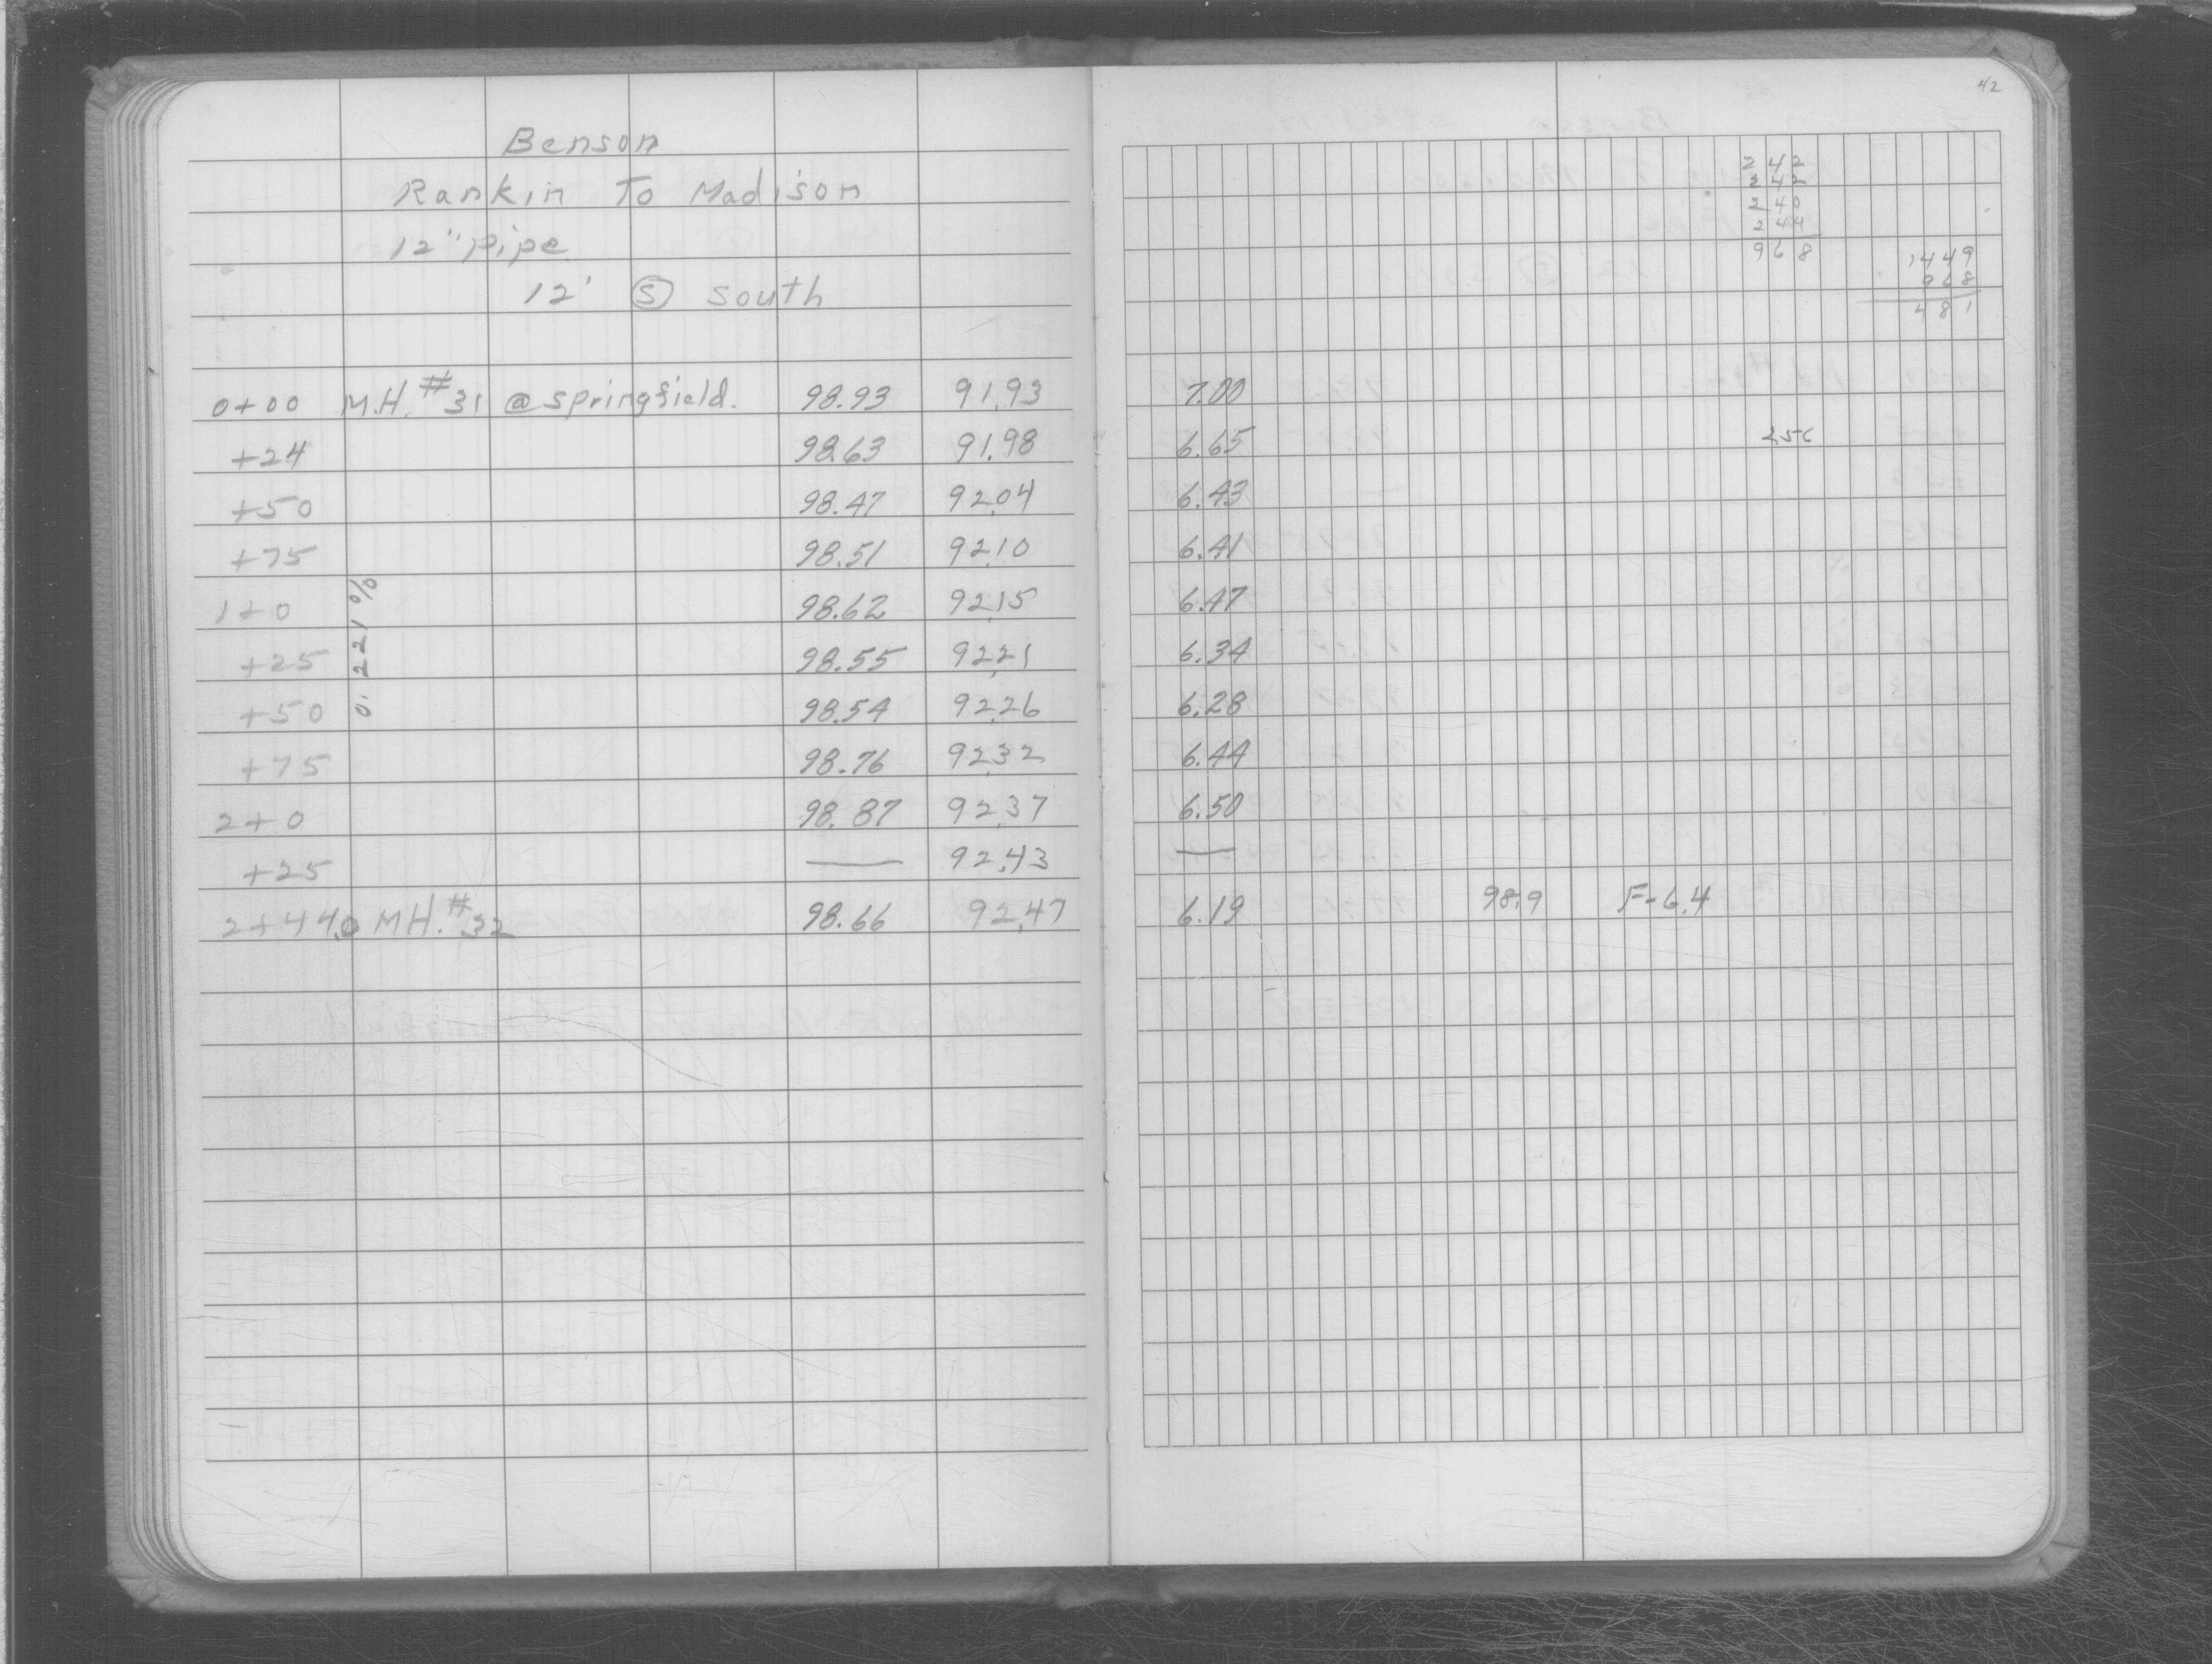 Benson
Rankin To Madison
12" pipe
12' Ⓢ South
0+00 M.H. #31 @ Springfield. 98.93 91.93
+24 98.63 91.98
+50 98.47 92.04
+75 98.51 92.10
1+0 98.62 92.15
+25 98.55 92.21
+50 98.54 92.26
+75 98.76 92.32
2+0 98.87 92.37
+25 — 92.43
2+44.0 MH. #32 98.66 92.47
0.221%
42
242
242
240
244
968
1449
968
481
7.00
6.65
6.43
6.41
6.47
6.34
6.28
6.44
6.50
—
6.19 98.9 F-6.4